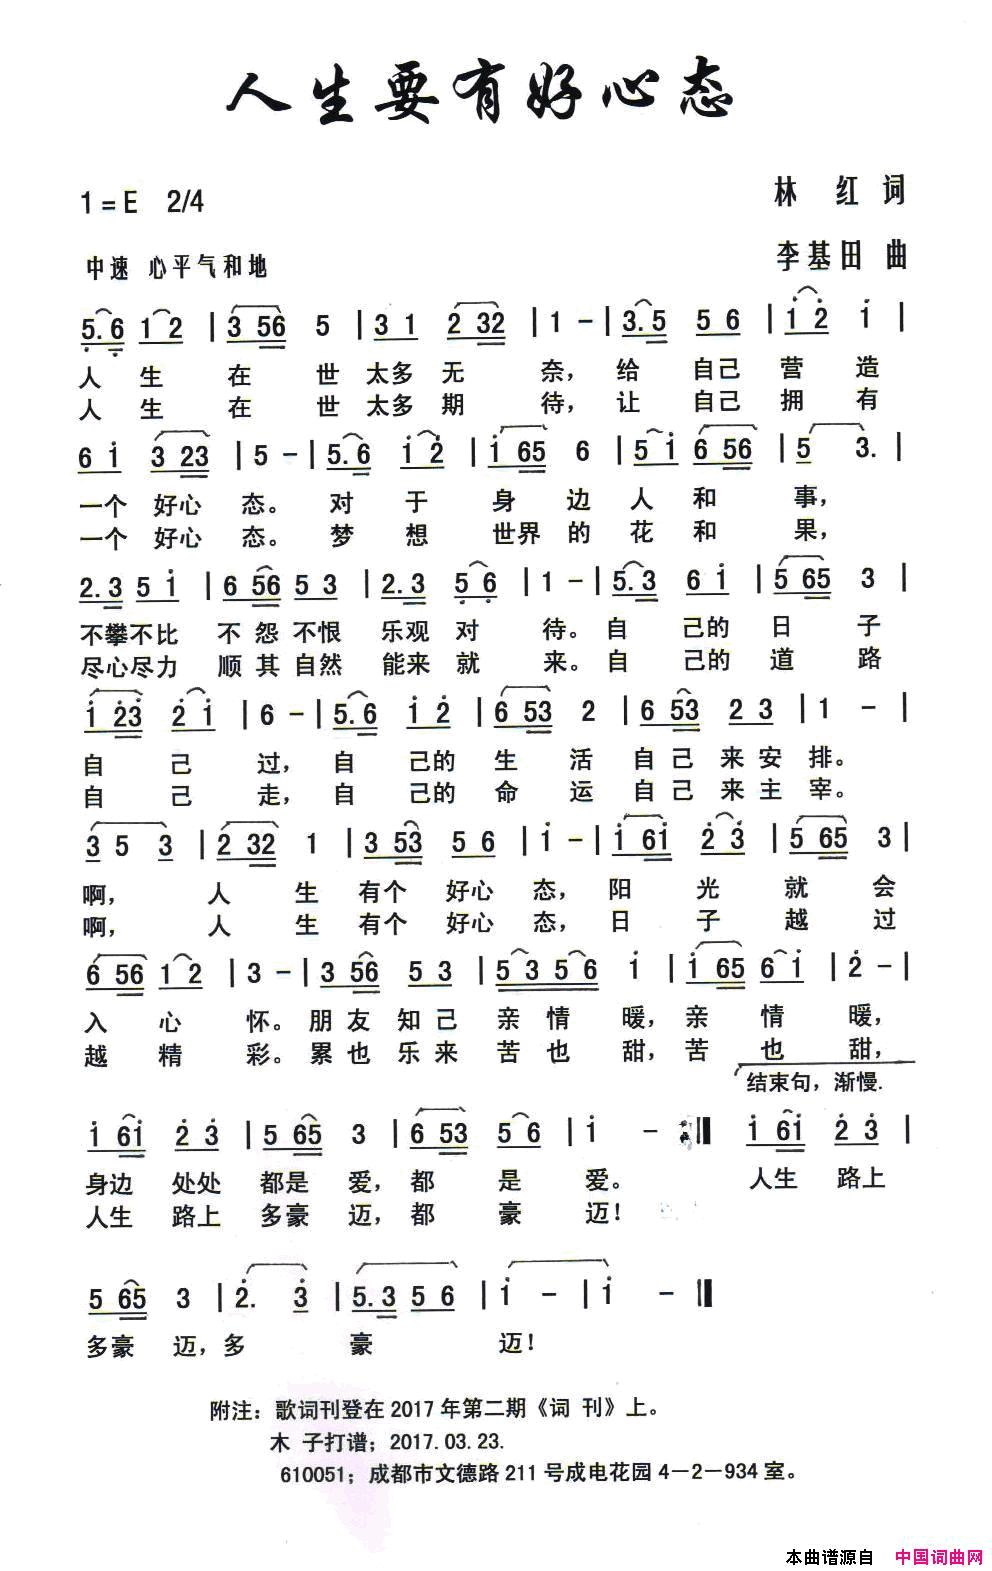 人生要有好心态
1=E 2/4
林 红 词
中速 心平气和地
李基田 曲
5.6 1 2 | 3 56 5 | 3 1 2 32 | 1 - | 3.5 5 6 | i 2 i |
人 生 在 世 太多 无 奈， 给 自己 营 造
人 生 在 世 太多 期 待， 让 自己 拥 有
6 i 3 23 | 5 - | 5.6 i 2 | i 65 6 | 5 i 6 56 | 5 3. |
一个 好心 态。 对 于 身 边 人 和 事，
一个 好心 态。 梦 想 世界 的 花 和 果，
2.3 5 i | 6 56 5 3 | 2.3 5 6 | 1 - | 5.3 6 i | 5 65 3 |
不攀不比 不 怨 不恨 乐观 对 待。 自 己的 日 子
尽心尽力 顺 其 自然 能来 就 来。 自 己的 道 路
i 23 2 i | 6 - | 5.6 i 2 | 6 53 2 | 6 53 2 3 | 1 - |
自 己 过， 自 己的 生 活 自 己 来 安 排。
自 己 走， 自 己的 命 运 自 己 来 主 宰。
3 5 3 | 2 32 1 | 3 53 5 6 | i - | i 6i 2 3 | 5 65 3 |
啊， 人 生 有个 好心 态， 阳 光 就 会
啊， 人 生 有个 好心 态， 日 子 越 过
6 56 1 2 | 3 - | 3 56 5 3 | 5 3 5 6 i | i 65 6 i | 2 - |
入 心 怀。 朋 友 知 己 亲 情 暖， 亲 情 暖，
越 精 彩。 累 也 乐 来 苦 也 甜， 苦 也 甜，
结束句，渐慢.
i 6i 2 3 | 5 65 3 | 6 53 5 6 | i - :‖ i 6i 2 3 |
身边 处处 都是 爱， 都 是 爱。 人生 路上
人生 路上 多豪 迈， 都 豪 迈！
5 65 3 | 2. 3 | 5.3 5 6 | i - | i - ‖
多豪 迈，多 豪 迈！
附注：歌词刊登在2017年第二期《词 刊》上。
木 子打谱；2017.03.23.
610051；成都市文德路211号成电花园4－2－934室。
本曲谱源自 中国词曲网